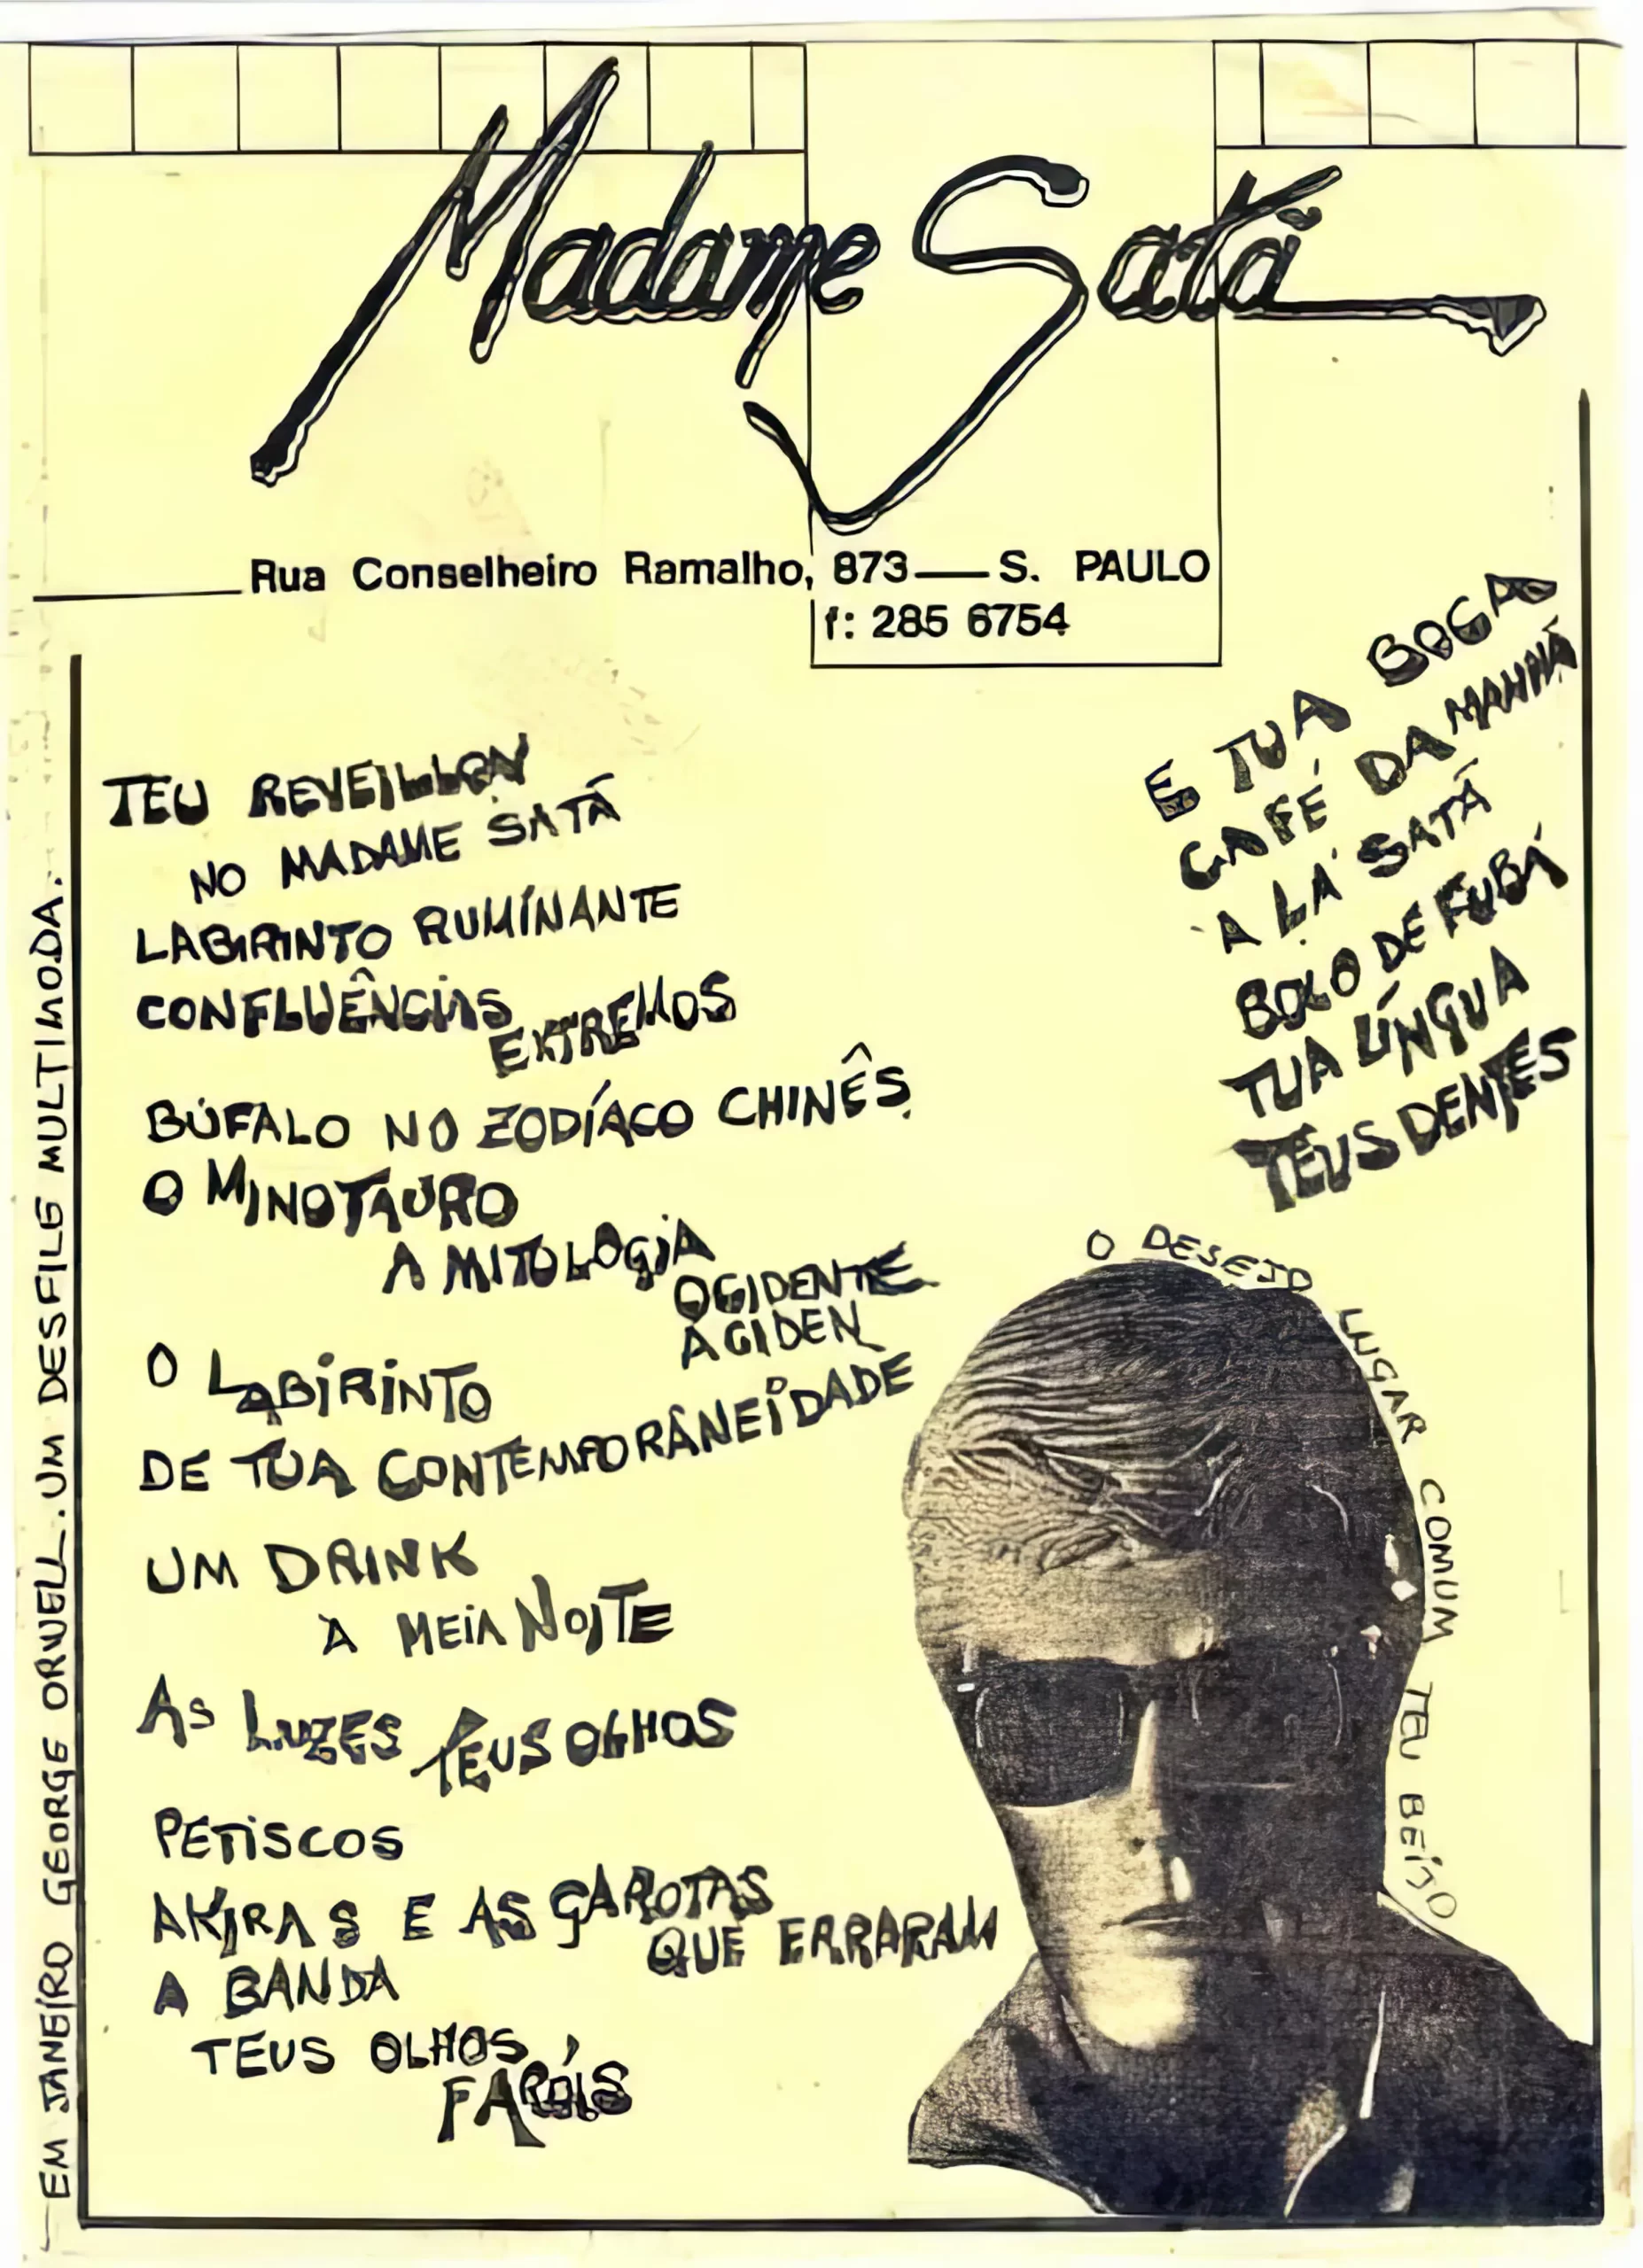 Madame Satã
Rua Conselheiro Ramalho, 873 — S. PAULO
f: 285 6754
TEU REVEILLON
NO MADAME SATÃ
LABIRINTO RUMÍNANTE
CONFLUÊNCIAS
EXTREMOS
BÚFALO NO ZODÍACO CHINÊS.
O MINOTAURO
A MITOLOGIA
OCIDENTE
ACIDEN
O LABIRINTO
DE TUA CONTEMPORÂNEIDADE
UM DRINK
À MEIA NOITE
AS LUZES TEUS OLHOS
PETISCOS
AKIRA S E AS GAROTAS
QUE ERRARAM
A BANDA
TEUS OLHOS
FARÓIS
E TUA BOCA
CAFÉ DA MANHÃ
A LÁ SATÃ
BOLO DE FUBÁ
TUA LÍNGUA
TEUS DENTES
O DESEJO LUGAR COMUM TEU BEIJO
— EM JANEÍRO GEORGE ORWELL. UM DESFILE MULTIMODA.